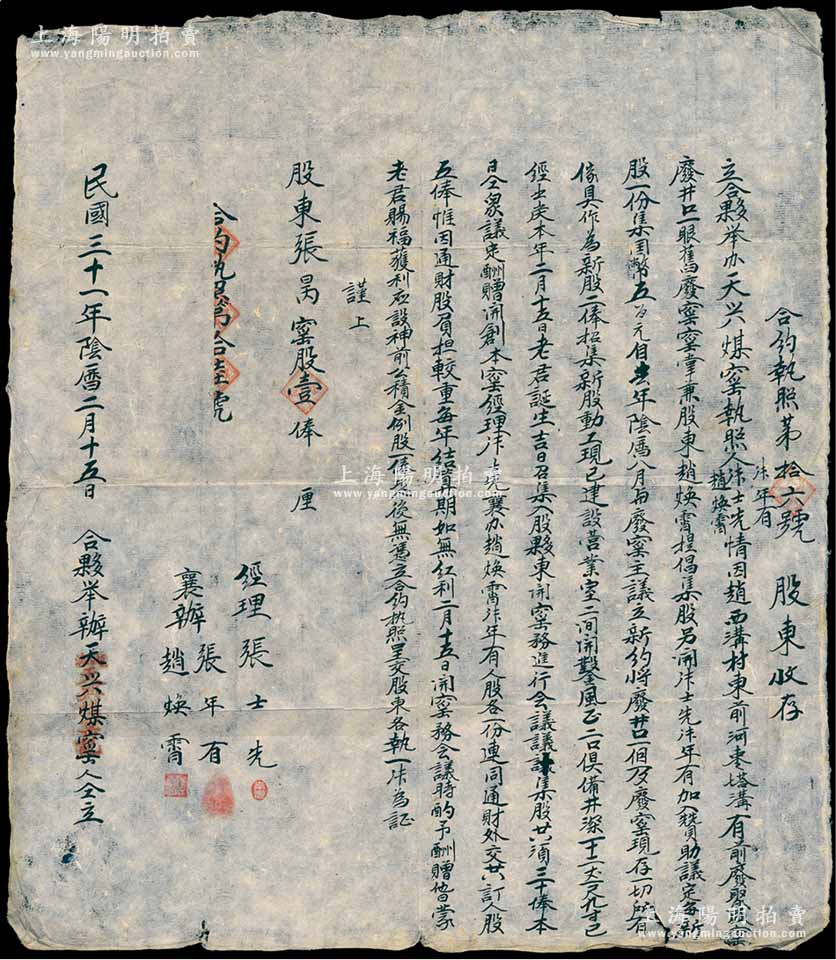 上海陽明拍賣
www.yangmingauction.com
合約執照第拾六號 股東收存
立合夥举办天兴煤窑执照人
張年有
張士先
趙煥霄
情因趙西溝村東前河枣塔溝有前廢
廢井口一眼舊廢窑窑事兼股東趙煥霄提倡集股另開張士先張年有加入贊助議定每新
股一份集国幣五百元自去年陰历八月与廢窑主議立新约将廢井口一個及廢窑現存一切所有
傢具作為新股二俸招集新股動工現已建設营業室二间開鑿風正二口俱備井深一十二丈二尺九寸已
經出炭本年二月十五日老君誕生吉日召集入股夥東開窑務進行会議議計集股廿八須三十俸本
日仝衆議定酬贈開創本窑經理張士先襄办趙煥霄張年有人股各一份連同通財外交共訂人股
五俸惟因通財股負担較重每年结算期如無红利二月十五日開窑務会議時酌予酬赠他日蒙
老君賜福獲利应設神前公積金例股一俸恐後無憑立合约执照呈交股東各執一張為証
謹上
股東張禺 窑股壹俸 厘
合約执照第拾陸號
經理張士先
襄辦張年有
趙煥霄
民國三十一年陰曆二月十五日 合夥举辦天兴煤窑人仝立
上海陽明拍賣
www.yangmingauction.com
上海陽明拍賣
www.yangmingauction.com